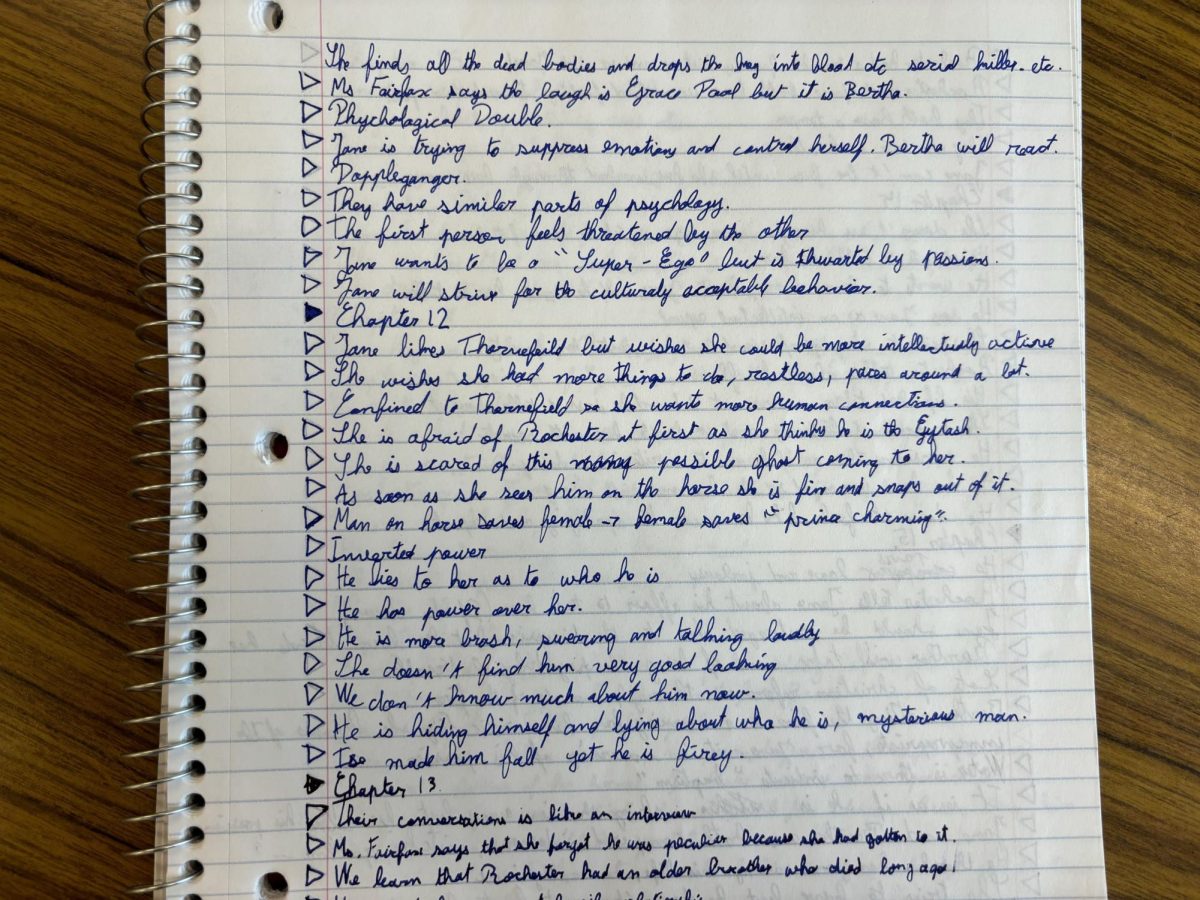 She finds all the dead bodies and drops the key into blood etc serial killer. etc.
Ms Fairfax says the laugh is Grace Pool but it is Bertha.
Phychological Double.
Jane is trying to suppress emotions and control herself. Bertha will react.
Doppleganger.
They have similar parts of psychology.
The first person feels threatened by the other
Jane wants to be a "Super-Ego" but is thwarted by passions.
Jane will strive for the culturaly acceptable behavior.
Chapter 12
Jane likes Thornefeild but wishes she could be more intellectualy active
She wishes she had more things to do, restless, paces around a lot.
Confined to Thornefield so she wants more human connections.
She is afraid of Rochester at first as she thinks he is the Gytash.
She is scared of this possible ghost coming to her.
As soon as she sees him on the horse she is fine and snaps out of it.
Man on horse saves female → female saves "prince charming".
Inverted power
He lies to her as to who he is
He has power over her.
He is more brash, swearing and talking loudly
She doesn't find him very good looking
We don't know much about him now.
He is hiding himself and lying about who he is, mysterious man.
Ice made him fall yet he is firey.
Chapter 13
Their conversations is like an interview
Ms. Fairfax says that she forgot he was peculiar because she had gotten to it.
We learn that Rochester had an older broather who died long ago.